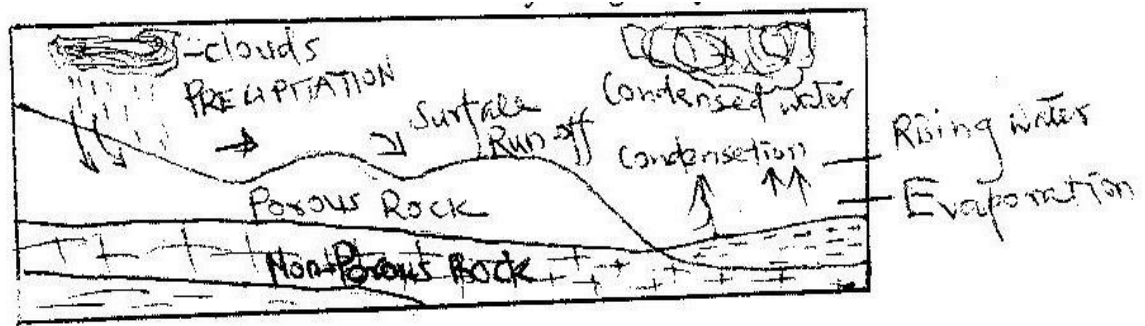 -clouds
PRECIPITATION
Surface
Run off
Condensed water
Condensetion
Rising water
Evaporation
Porous Rock
Non-Porous Rock